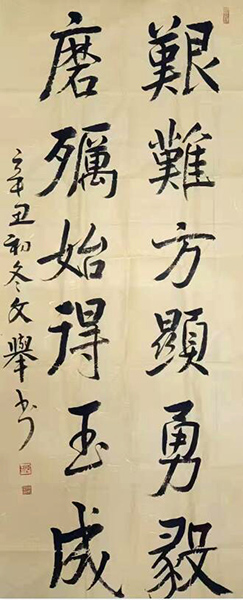 艱難方顯勇毅
磨礪始得玉成
辛丑初冬文舉書